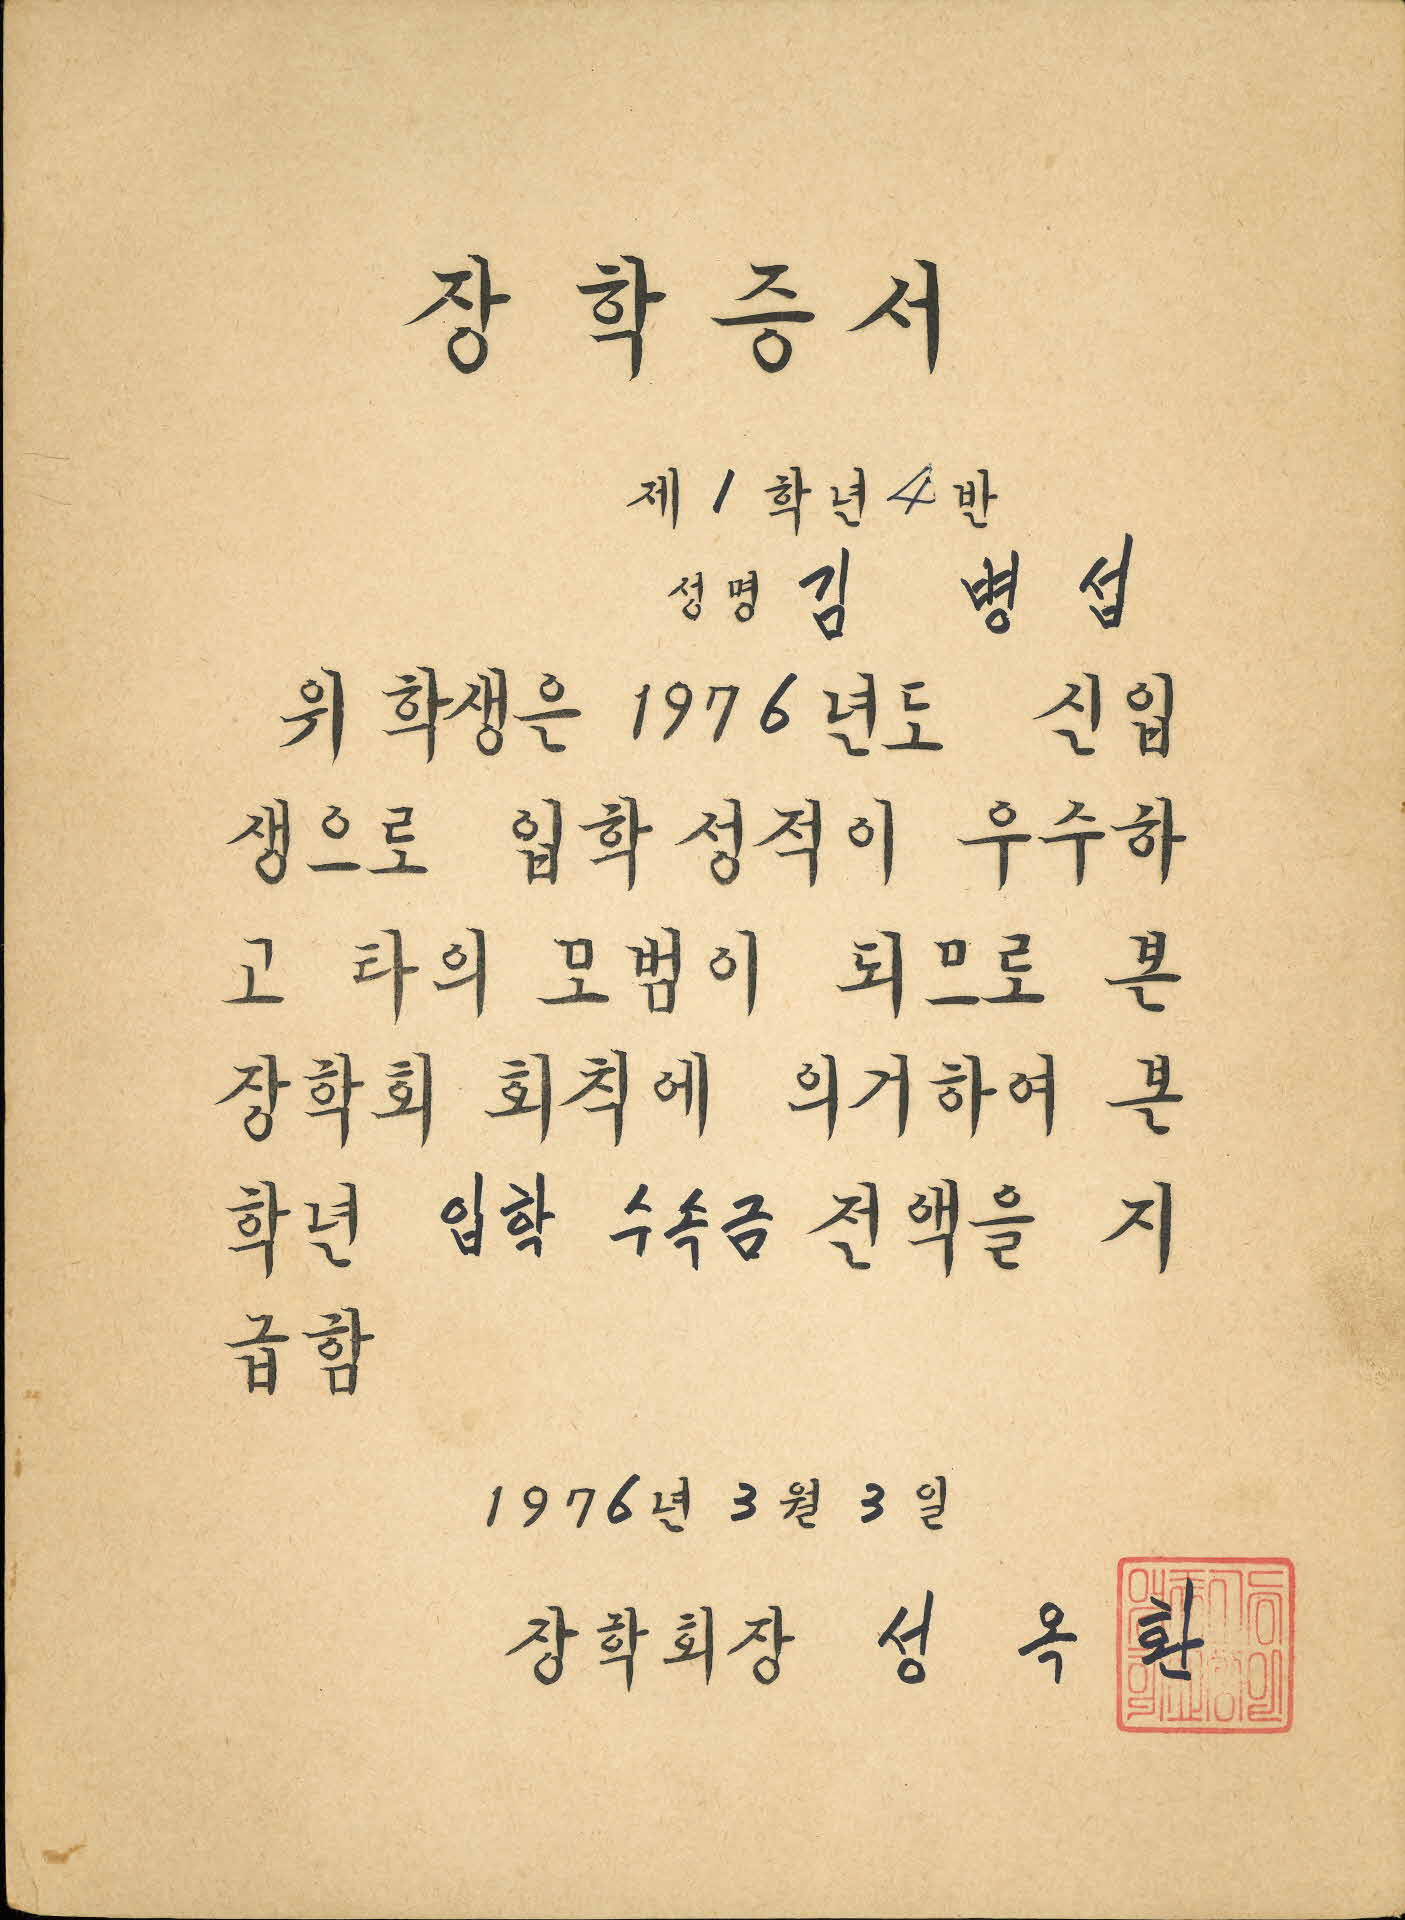 장학증서
제 1 학년 4 반
성명 김 병 섭
위 학생은 1976년도 신입
생으로 입학 성적이 우수하
고 타의 모범이 되므로 본
장학회 회칙에 의거하여 본
학년 입학 수속금 전액을 지
급함
1976년 3월 3일
장학회장 성 옥 환